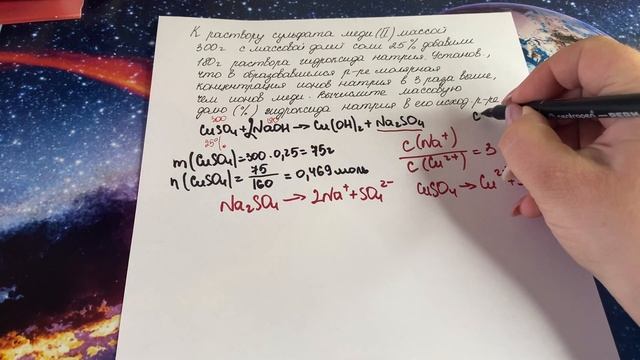 К раствору сульфата меди (II) массой
300г с массовой долей соли 25% добавили
180г раствора гидроксида натрия. Установ.,
что в образовавшимся р-ре молярная
концентрация ионов натрия в 3 раза выше,
чем ионов меди. Вычислите массовую
долю (%) гидроксида натрия в его исход. р-ре
300 180
CuSO4 + 2NaOH → Cu(OH)2 + Na2SO4
25%
c(Na+)/c(Cu2+) = 3
m(CuSO4) = 300 · 0,25 = 75г
n(CuSO4) = 75/160 = 0,469 моль
Na2SO4 → 2Na+ + SO4 2-
CuSO4 → Cu2+
c